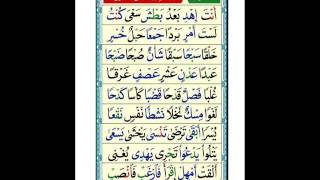 اَنْتَ اِهْدِ بَعْدُ بَطْشَ سَعْىَ كُنْتُ
لَسْتَ اَمْرِ بَرْدًا جَمْعًا حَبْلُ خُسْرٍ
خَلْقًا سَبْحًا سَبْقًا شَاْنٌ صُبْحًا ضَبْحًا
عَبْدًا عَدْنٍ عَشْرٍ عَصْفٍ غَرْقًا
غُلْبًا فَصْلٌ قَدْحًا قَضْبًا كَاْسًا كَدْحًا
لَغْوًا مِسْكٌ نَخْلًا نَشْطًا نَفْسٍ نَقْعًا
يُسْرًا اَبْقٰى تَرْضٰى تَنْسٰى يَخْشٰى يَسْعٰى
يَتْلُوْا يَدْعُوْا تَجْرِىْ يَهْدِىْ يُغْنِىْ
اَلْقَتْ اَمْهِلْ اِقْرَاْ فَارْغَبْ فَانْصَبْ